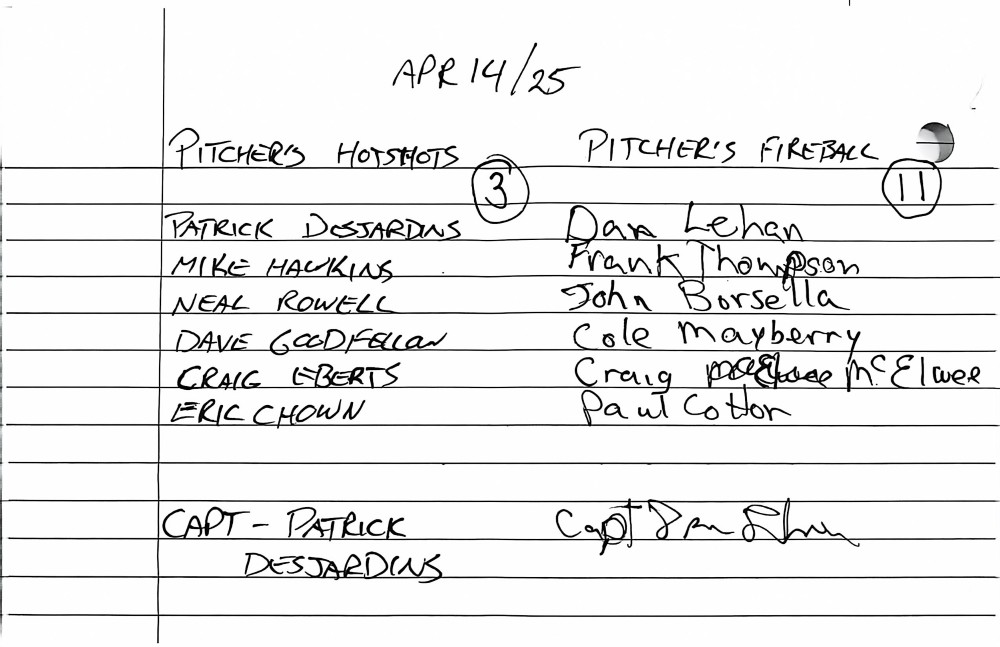 APR 14/25
PITCHER'S HOTSHOTS PITCHER'S FIREBALL
3 11
PATRICK DESJARDINS Dan Lehan
MIKE HAWKINS Frank Thompson
NEAL ROWELL John Borsella
DAVE GOODFELLOW Cole Mayberry
CRAIG EBERTS Craig McElwee
ERIC CHOWN Paul Cotton
CAPT - PATRICK Capt Dan Lehan
DESJARDINS